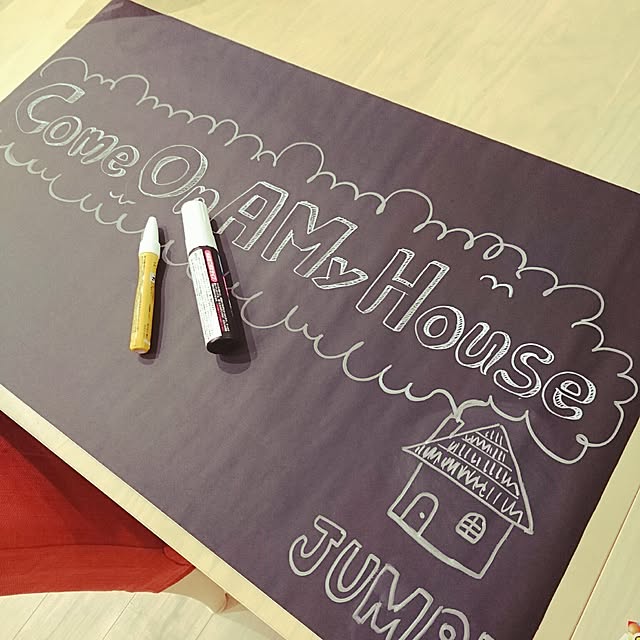 Come On A My House
JUMP